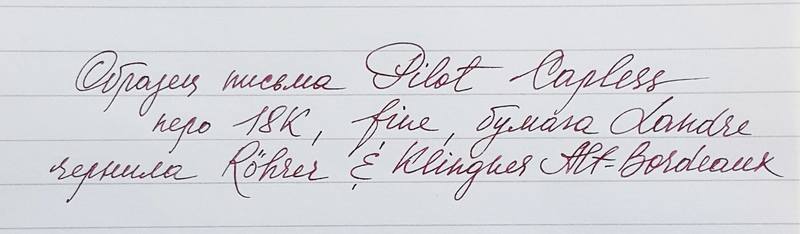 Образец письма Pilot Capless
перо 18K, fine, бумага Landre
чернила Röhrer & Klingner Alt-Bordeaux